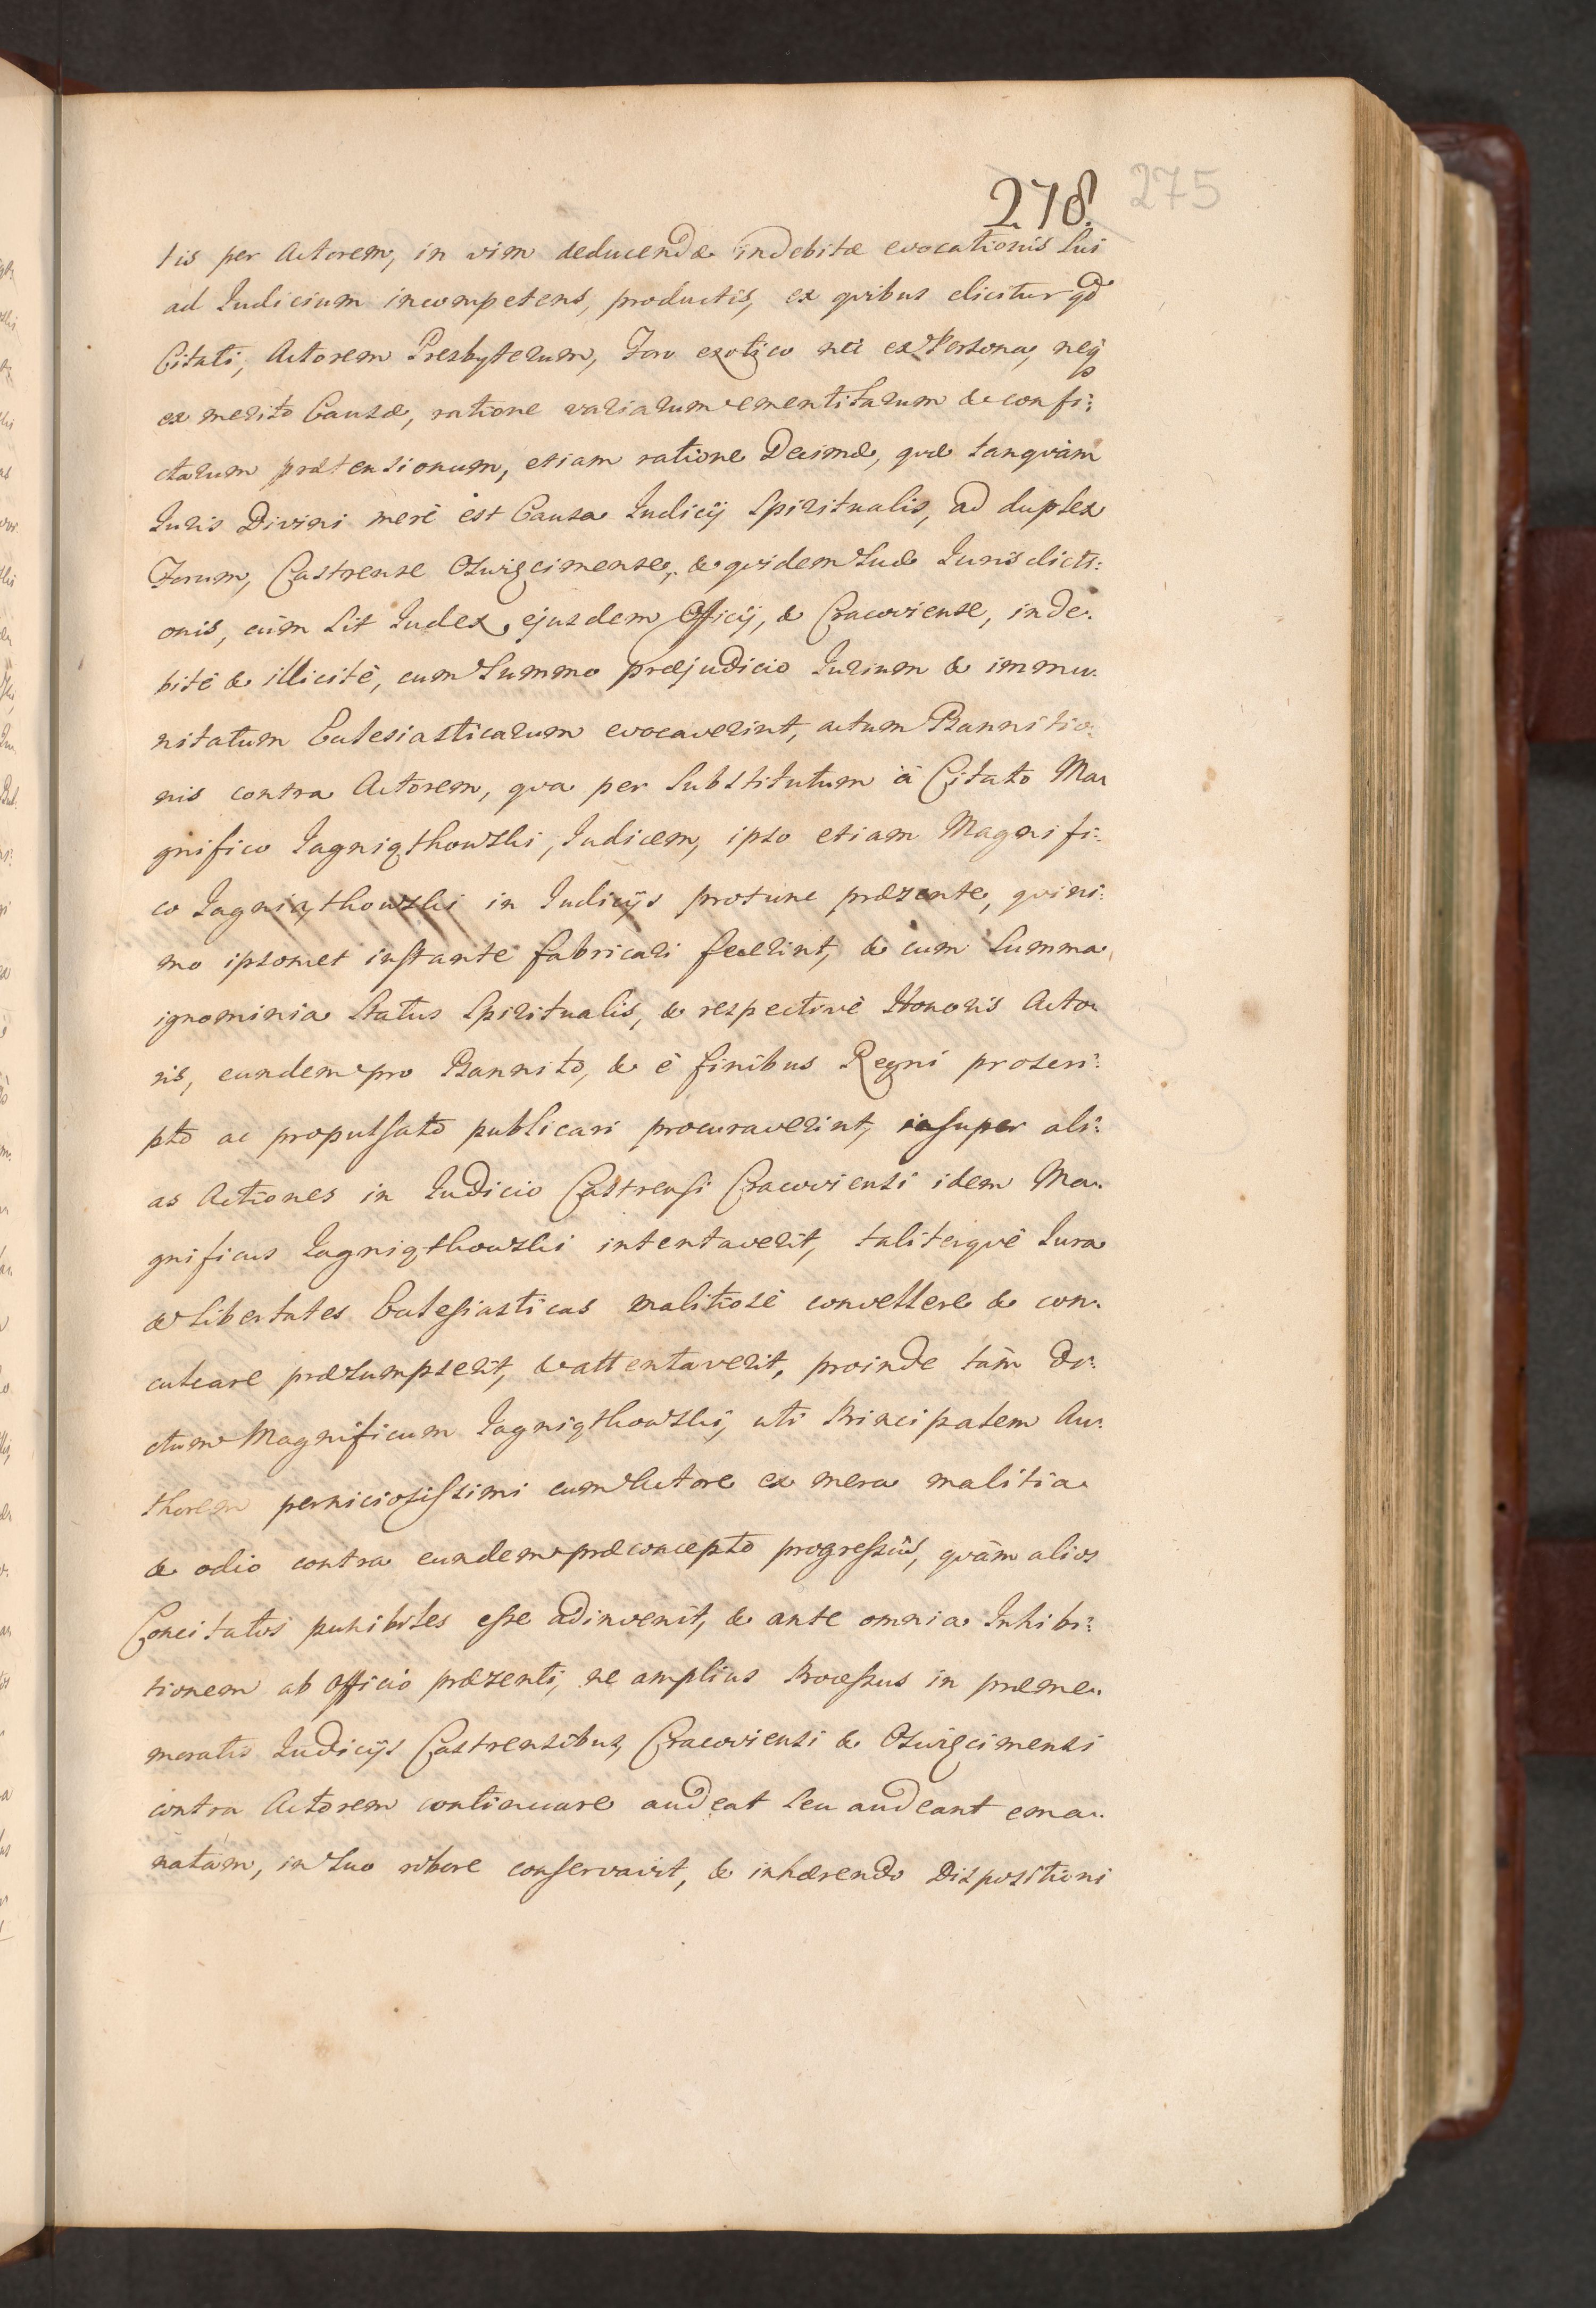 278. 275
tis per Actorem, in vim deducendæ indebitæ evocationis Sui
ad Iudicium incompetens, productis, ex qvibus elicitur qd
Citati, Actorem Presbyterum, Foro exotico nec ex Persona, neq
ex merito Causæ, ratione variarum ementitarum & confi:
ctarum prætensionum, etiam ratione Decimæ, qvæ tanqvàm
Iuris Divini merè est Causa Iudicij Spiritualis, ad duplex
Forum, Castrense Oswięcimense, & qvidem Suæ Iurisdicti:
onis, cùm Sit Iudex ejusdem Officij, & Cracoviense, inde.
bitè & illicitè, cum Summo præjudicio Iurium & immu.
nitatum Eclesiasticarum evocaverint, actum Bannitio.
nis contra Actorem, qva per Substitutum à Citato Ma.
gnifico Iagniąthowski, Iudicem, ipso etiam Magnifi:
co Iagniąthowski in Iudicijs protunc præsente, qvini:
mo ipsomet instante fabricari fecerint, & cum Summa
ignominia Status Spiritualis, & respectivè Honoris Acto.
ris, eundem pro Bannito, & è finibus Regni proscri:
pto ac propulsato publicari procuraverint, insuper ali:
as Actiones in Iudicio Castrensi Cracoviensi idem Ma.
gnificus Iagniąthowski intentaverit, taliterqvè Iura
& Libertates Eclesiasticas malitiosè convellere & con.
culcare præsumpserit, & attentaverit, proinde tàm di:
ctum Magnificum Iagniąthowski, uti Principalem Au:
thorem perniciosissimi cum Actore ex mera malitia
& odio contra eundem præconcepto progressûs, qvàm alios
Concitatos punibiles esse adinvenit, & ante omnia Inhibi:
tionem ab Officio præsenti, ne amplius Processus in præme.
moratis Iudicijs Castrensibus, Cracoviensi & Oswięcimensi
contra Actorem continuare audeat Seu audeant ema..
natam, in Suo robore conservavit, & inhærendo Dispositioni